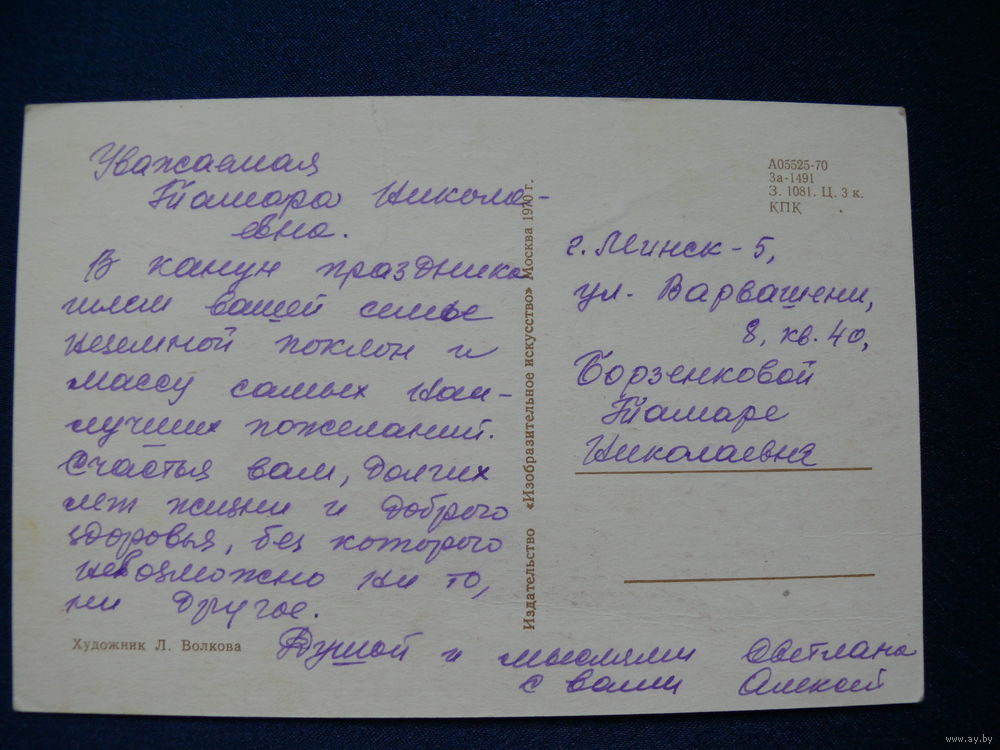 Уважаемая
Тамара Никола-
евна.
В канун праздника
шлем вашей семье
неземной поклон и
массу самых наи-
лучших пожеланий.
Счастья вам, долгих
лет жизни и доброго
здоровья, без которого
невозможно ни то,
ни другое.
Душой и мыслями
с вами
Светлана
Алексей
Художник Л. Волкова
Издательство «Изобразительное искусство» Москва 1970 г.
А05525-70
За-1491
З. 1081. Ц. 3 к.
КПК
г. Минск-5,
ул. Варвашени,
8, кв. 40,
Борзенковой
Тамаре
Николаевне
www.ay.by